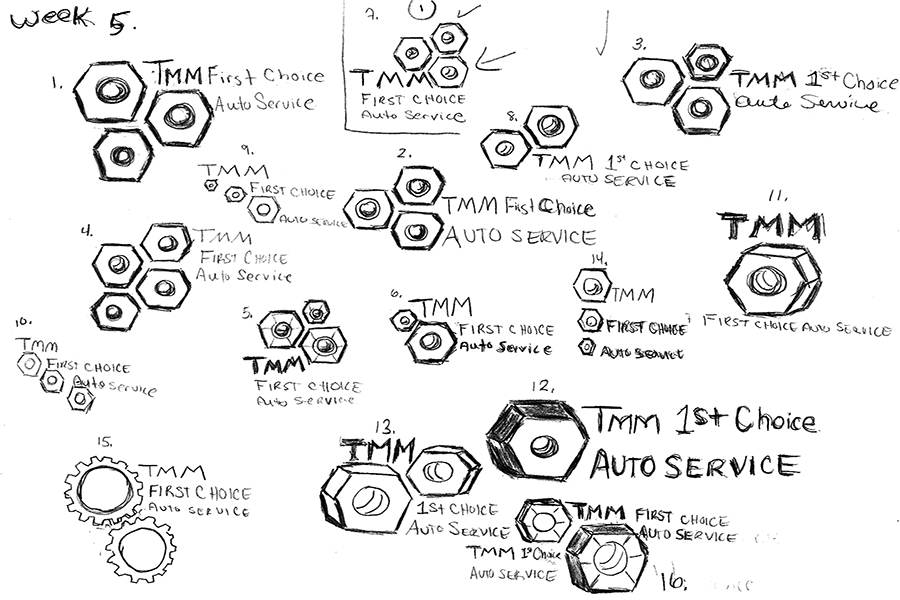 Week 5.
1.
TMM First Choice
Auto Service
7.
1
TMM
FIRST CHOICE
Auto Service
3.
TMM 1st Choice
auto Service
8.
TMM 1st CHOICE
AUTO SERVICE
9.
TMM
FIRST CHOICE
AUTO SERVICE
2.
TMM First Choice
AUTO SERVICE
11.
TMM
FIRST CHOICE AUTO SERVICE
4.
TMM
FIRST CHOICE
Auto Service
5.
TMM
FIRST CHOICE
Auto SERVICE
6.
TMM
FIRST CHOICE
Auto Service
14.
TMM
FIRST CHOICE
AUTO SERVICE
10.
TMM
FIRST CHOICE
Auto SERVICE
15.
TMM
FIRST CHOICE
AUTO SERVICE
13.
TMM
1st CHOICE
AUTO SERVICE
12.
TMM 1st Choice
AUTO SERVICE
TMM FIRST CHOICE
AUTO SERVICE
TMM 1st Choice
AUTO SERVICE
16.